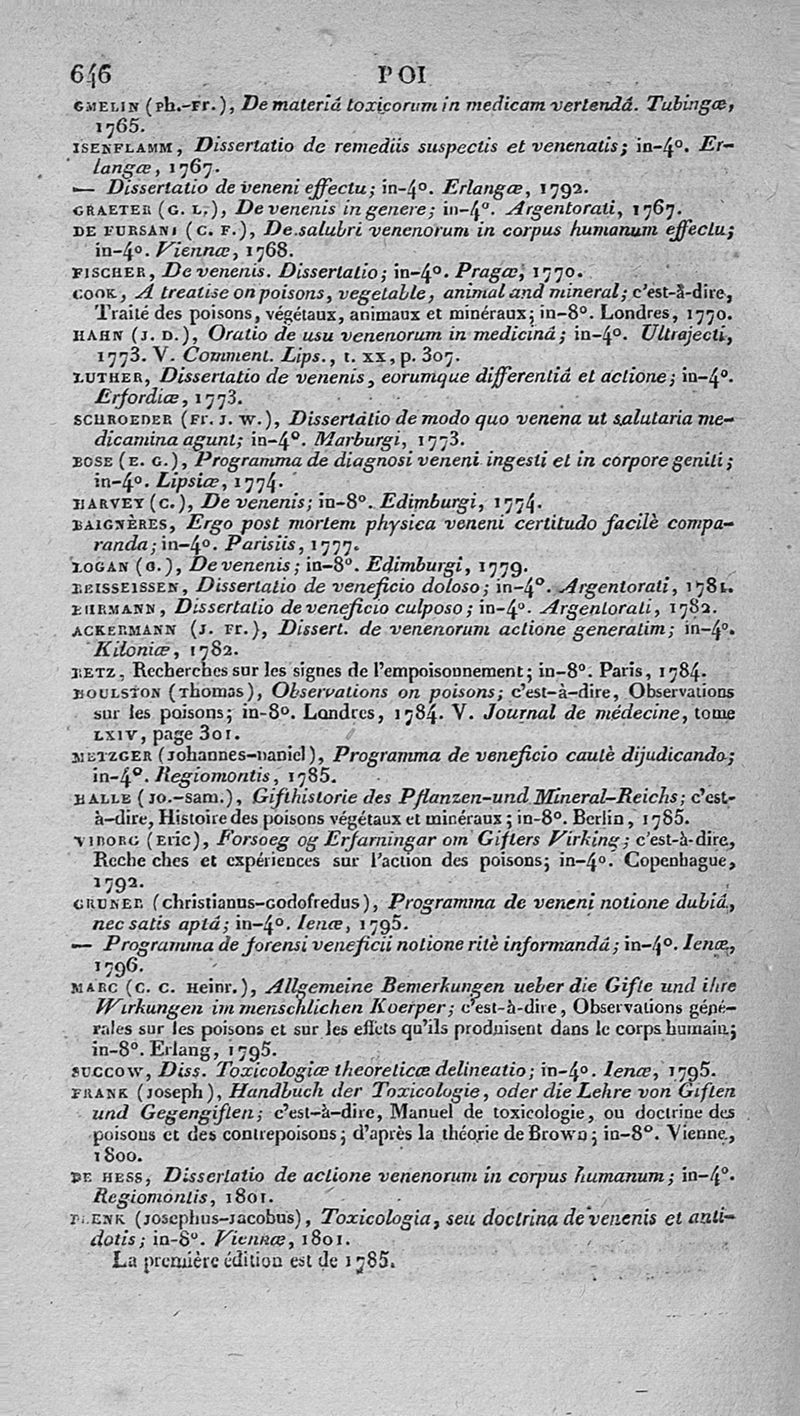 646 POI
GMELIN (ph.-Fr.), De materiâ toxicorum in medicam vertendâ. Tubingæ,
1765.
ISENFLAMM, Dissertatio de remediis suspectis et venenatis; in-4°. Er-
langæ, 1767.
— Dissertatio de veneni effectu; in-4°. Erlangæ, 1792.
GRAETER (G. L.), De venenis in genere; in-4°. Argentorati, 1767.
DE FURSANI (C. F.), De salubri venenorum in corpus humanum effectu;
in-4°. Viennæ, 1768.
FISCHER, De venenis. Dissertatio; in-4°. Pragæ, 1770.
COOK, A treatise on poisons, vegetable, animal and mineral; c'est-à-dire,
Traité des poisons, végétaux, animaux et minéraux; in-8°. Londres, 1770.
HAHN (J. D.), Oratio de usu venenorum in medicinâ; in-4°. Ultrajecti,
1773. V. Comment. Lips., t. XX, p. 307.
LUTHER, Dissertatio de venenis, eorumque differentiâ et actione; in-4°.
Erfordiæ, 1773.
SCHROEDER (Fr. J. W.), Dissertatio de modo quo venena ut salutaria me-
dicamina agunt; in-4°. Marburgi, 1773.
BOSE (E. G.), Programma de diagnosi veneni ingesti et in corpore geniti;
in-4°. Lipsiæ, 1774.
HARVEY (C.), De venenis; in-8°. Edimburgi, 1774.
BAIGNÈRES, Ergo post mortem physica veneni certitudo facilè compa-
randa; in-4°. Parisiis, 1777.
LOGAN (G.), De venenis; in-8°. Edimburgi, 1779.
REISSEISSEN, Dissertatio de veneficio doloso; in-4°. Argentorati, 1781.
EHRMANN, Dissertatio de veneficio culposo; in-4°. Argentorati, 1782.
ACKERMANN (J. Fr.), Dissert. de venenorum actione generatim; in-4°.
Kiloniæ, 1782.
RETZ, Recherches sur les signes de l'empoisonnement; in-8°. Paris, 1784.
HOULSTON (Thomas), Observations on poisons; c'est-à-dire, Observations
sur les poisons; in-8°. Londres, 1784. V. Journal de médecine, tome
LXIV, page 301.
METZGER (Johannes-Daniel), Programma de veneficio cautè dijudicando;
in-4°. Regiomontis, 1785.
HALLE (Jo.-Sam.), Gifthistorie des Pflanzen-und Mineral-Reichs; c'est-
à-dire, Histoire des poisons végétaux et minéraux; in-8°. Berlin, 1785.
VIBORG (Eric), Forsoeg og Erfarningar om Gifters Virking; c'est-à-dire,
Reche ches et expériences sur l'action des poisons; in-4°. Copenhague,
1792.
GRUNER (christianus-Godofredus), Programma de veneni notione dubiâ,
nec satis aptâ; in-4°. Ienæ, 1795.
— Programma de forensi veneficii notione ritè informandâ; in-4°. Ienæ,
1796.
MARC (C. C. Heinr.), Allgemeine Bemerkungen ueber die Gifte und ihre
Wirkungen im menschlichen Koerper; c'est-à-dire, Observations géné-
rales sur les poisons et sur les effets qu'ils produisent dans le corps humain;
in-8°. Erlang, 1795.
SUCCOW, Diss. Toxicologiæ theoreticæ delineatio; in-4°. Ienæ, 1795.
FRANK (Joseph), Handbuch der Toxicologie, oder die Lehre von Giften
und Gegengiften; c'est-à-dire, Manuel de toxicologie, ou doctrine des
poisons et des contrepoisons; d'après la théorie de Brown; in-8°. Vienne,
1800.
DE HESS, Dissertatio de actione venenorum in corpus humanum; in-4°.
Regiomontis, 1801.
PLENK (Josephus-Jacobus), Toxicologia, seu doctrina de venenis et anti-
dotis; in-8°. Viennæ, 1801.
La première édition est de 1785.